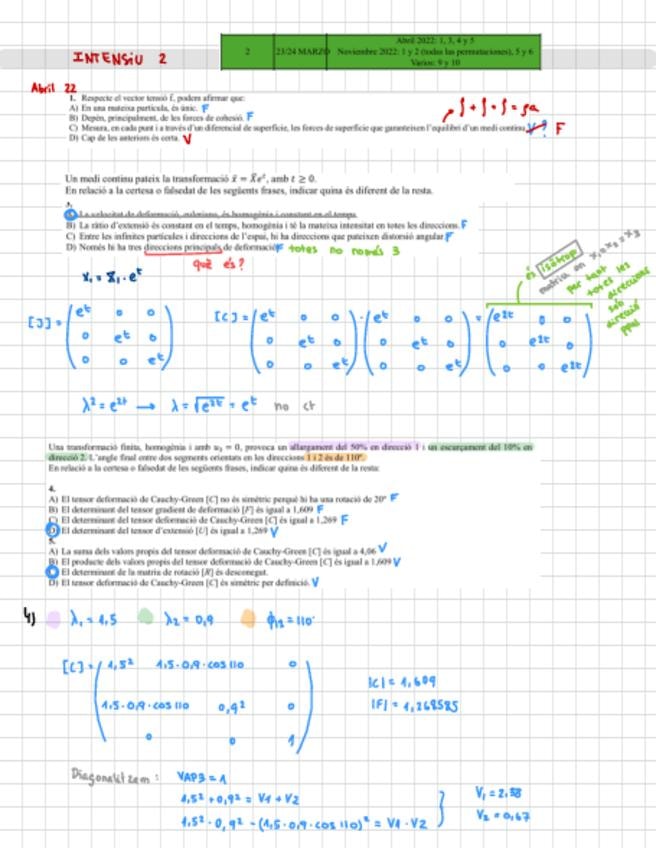 INTENSIU 2
2 23/24 MARZO Abril 2022: 1, 3, 4 y 5
Noviembre 2022: 1 y 2 (todas las permutaciones), 5 y 6
Varios: 9 y 10
Abril 22
1. Respecte el vector tensió t, podem afirmar que:
A) En una mateixa partícula, és únic. F
B) Depèn, principalment, de les forces de cohesió. F
C) Mesura, en cada punt i a través d'un diferencial de superfície, les forces de superfície que garanteixen l'equilibri d'un medi continu. F
D) Cap de les anteriors és certa. V
Un medi continu pateix la transformació x̄ = X̄eᵗ, amb t ≥ 0.
En relació a la certesa o falsedat de les següents frases, indicar quina és diferent de la resta.
3.
B) La ràtio d'extensió és constant en el temps, homogènia i té la mateixa intensitat en totes les direccions. F
C) Entre les infinites partícules i direccions de l'espai, hi ha direccions que pateixen distorsió angular. F
D) Només hi ha tres direccions principals de deformació F totes no només 3
què és?
x₁ = X₁ · eᵗ
és isòtrop
per tant
totes les
direccions
són
direcció
ppal
[J] = ( eᵗ 0 0 [C] = ( eᵗ 0 0 · ( eᵗ 0 0 = ( e²ᵗ 0 0
0 eᵗ 0 0 eᵗ 0 0 eᵗ 0 0 e²ᵗ 0
0 0 eᵗ ) 0 0 eᵗ ) 0 0 eᵗ ) 0 0 e²ᵗ )
λ² = e²ᵗ → λ = √e²ᵗ = eᵗ no ct
Una transformació finita, homogènia i amb u₃ = 0, provoca un allargament del 50% en direcció 1 i un escurçament del 10% en
direcció 2. L'angle final entre dos segments orientats en les direccions 1 i 2 és de 110º.
En relació a la certesa o falsedat de les següents frases, indicar quina és diferent de la resta:
4.
A) El tensor deformació de Cauchy-Green [C] no és simètric perquè hi ha una rotació de 20º F
B) El determinant del tensor gradient de deformació [F] és igual a 1,609 F
C) El determinant del tensor deformació de Cauchy-Green [C] és igual a 1,269 F
D) El determinant del tensor d'extensió [U] és igual a 1,269 V
5.
A) La suma dels valors propis del tensor deformació de Cauchy-Green [C] és igual a 4,06 V
B) El producte dels valors propis del tensor deformació de Cauchy-Green [C] és igual a 1,609 V
C) El determinant de la matriu de rotació [R] és desconegut.
D) El tensor deformació de Cauchy-Green [C] és simètric per definició. V
4) λ₁ = 1,5 λ₂ = 0,9 ϕ₁₂ = 110º
[C] = ( 1,5² 1,5·0,9·cos 110 0
1,5·0,9·cos 110 0,9² 0
0 0 1 )
|C| = 1,609
|F| = 1,268585
Diagonalitzem: VAP3 = 1
1,5² + 0,9² = V1 + V2
1,5² · 0,9² - (1,5·0,9·cos 110)² = V1 · V2
V₁ = 2,38
V₂ = 0,67